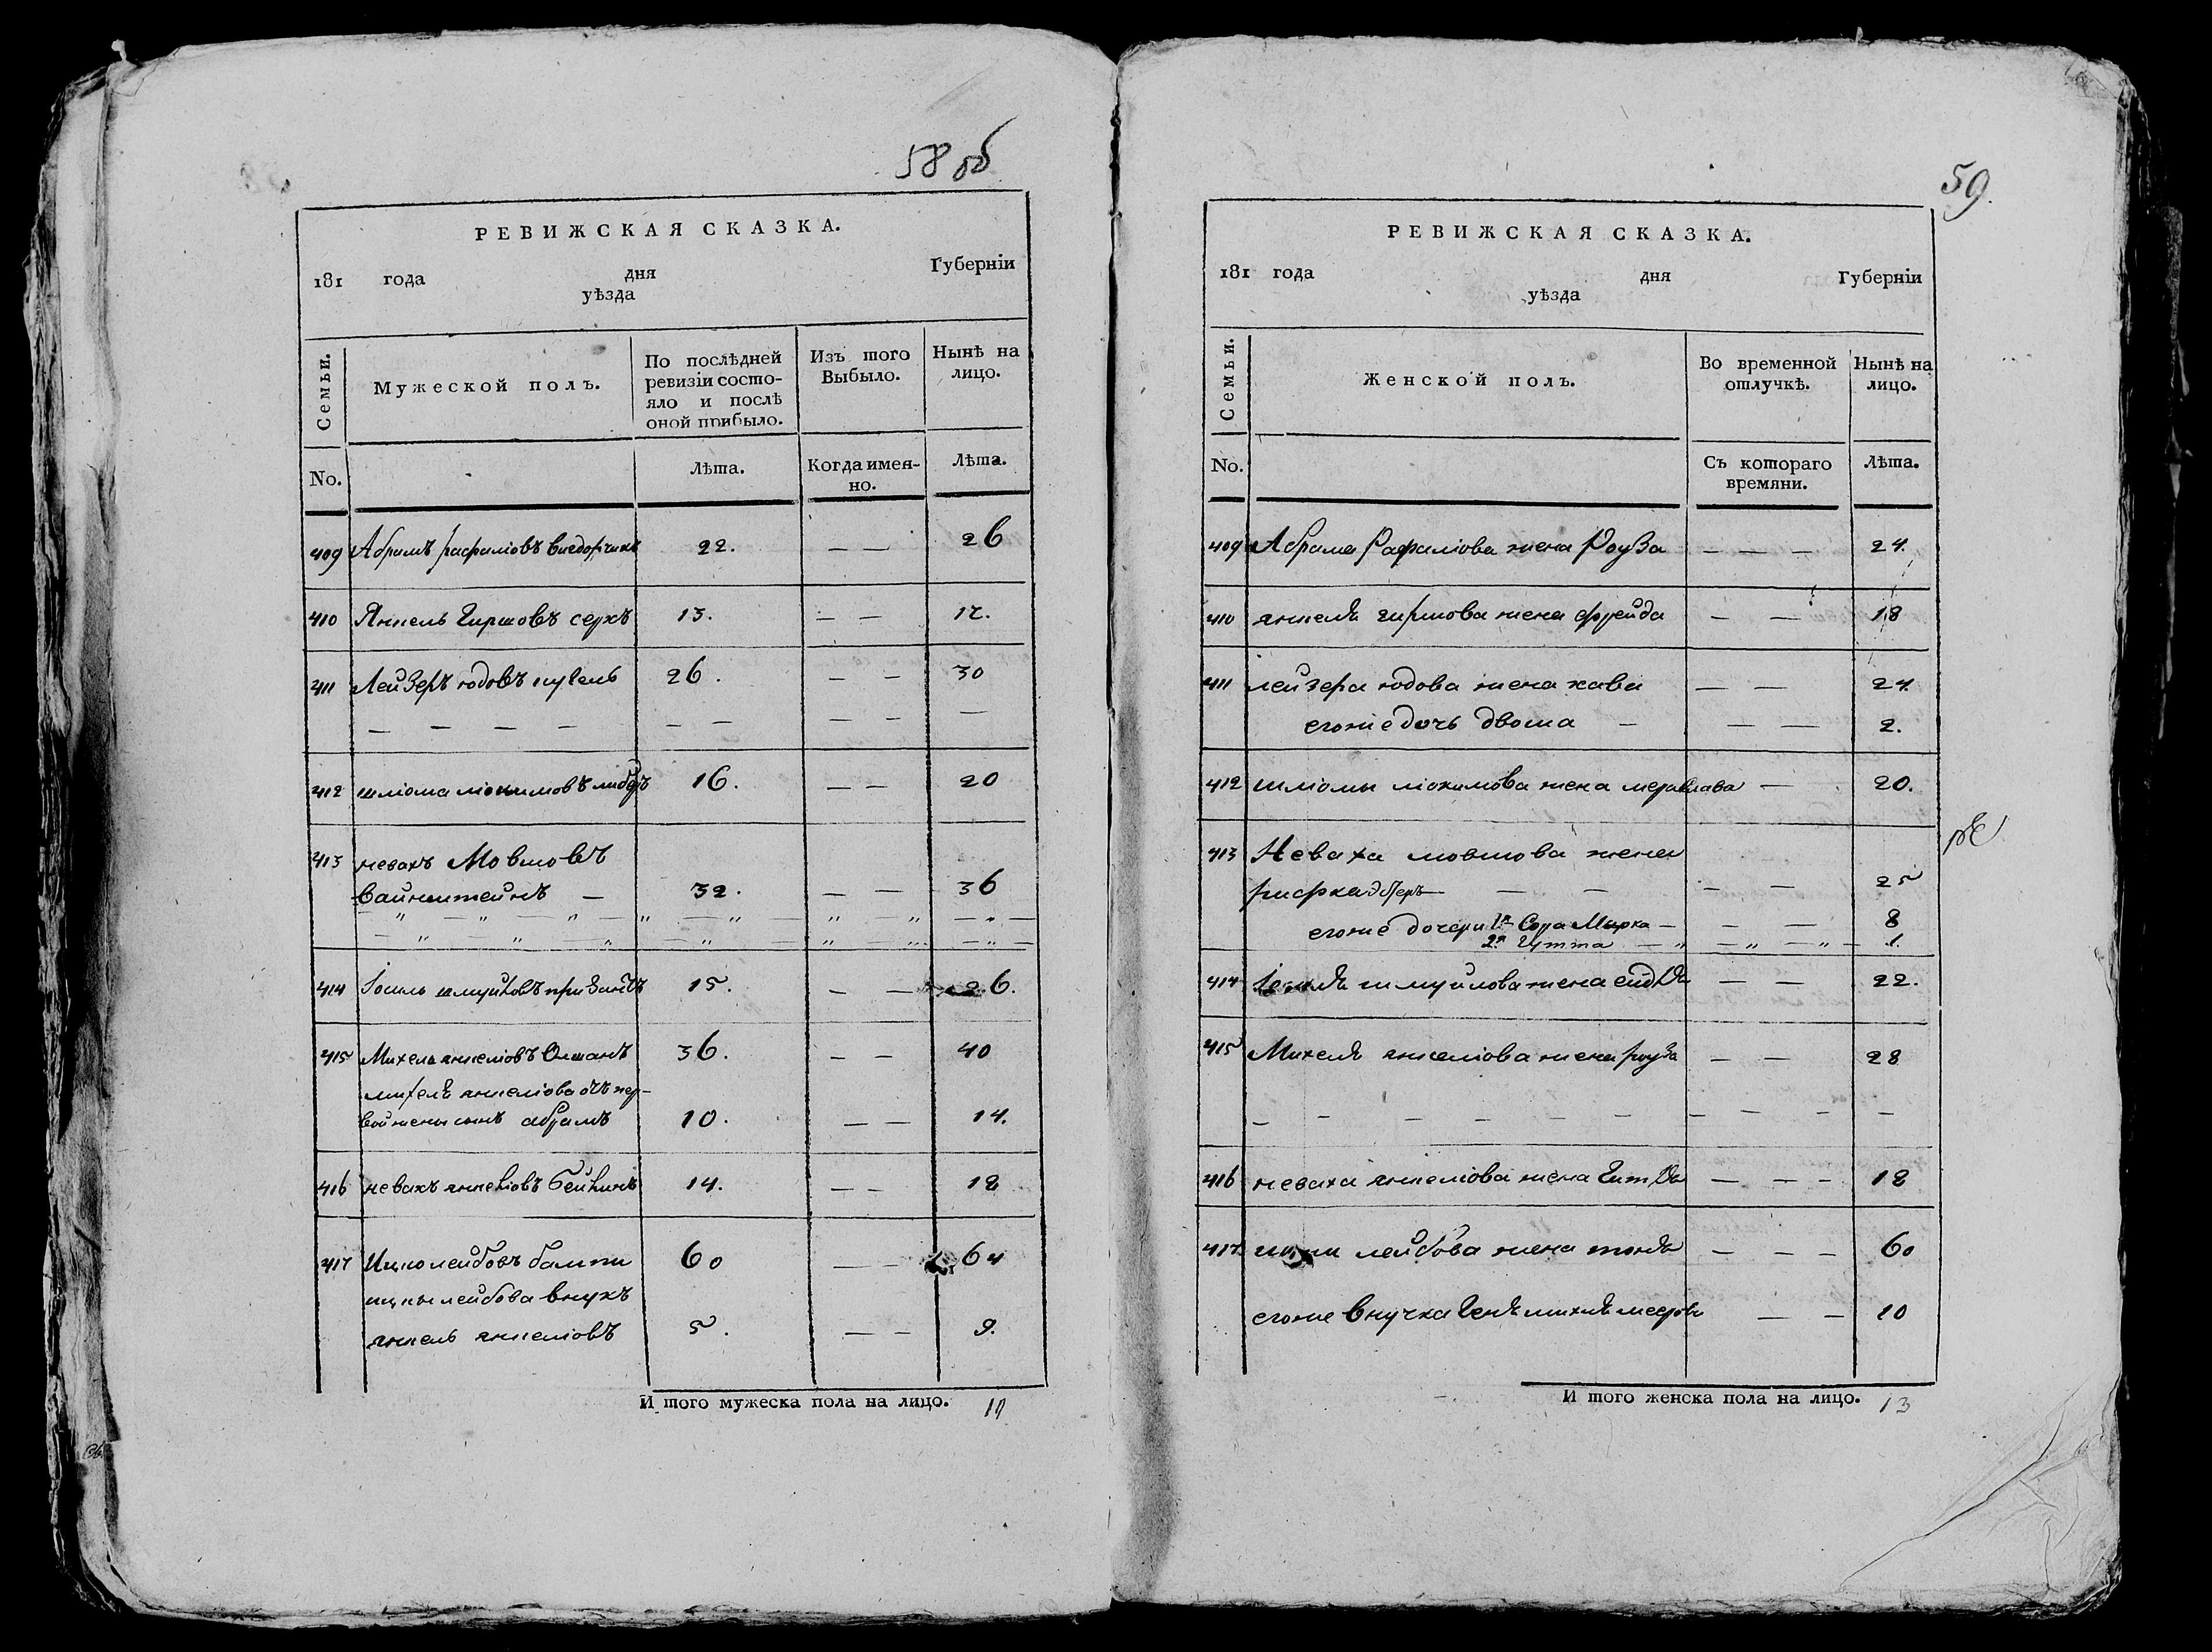 58 об
РЕВИЖСКАЯ СКАЗКА.
181 года дня Губернiи
уѣзда
Семьи.
Мужеской полъ.
По послѣдней ревизiи состо-
яло и послѣ оной прибыло.
Изъ того Выбыло.
Нынѣ на лицо.
No.
Лѣта.
Когда имен-
но.
Лѣта.
409 Абрамъ рафалiовъ 22. — — 26
410 Янкель Гиршовъ серхъ 13. — — 17.
411 Лейзеръ юдовъ 26. — — 30
— — — — — — — — —
412 шлiома 16. — — 20
413 невахъ Мовшовъ
вайнштейнъ — 32. — — 36
414 Iосиль шмуйловъ 15. — — 26.
415 Михель янкелiовъ 36. — — 40
михеля янкелiова отъ пер-
вой жены сынъ абрамъ 10. — — 14.
416 невахъ янкелiовъ бейлинъ 14. — — 18
417 Ицко лейбовъ 60 — — 64
ицки лейбова внукъ
янкель янкелiовъ 5. — — 9.
И того мужеска пола на лицо.
59.
РЕВИЖСКАЯ СКАЗКА.
181 года дня Губернiи
уѣзда
Семьи.
Женской полъ.
Во временной отлучкѣ.
Нынѣ на лицо.
No.
Съ котораго времяни.
Лѣта.
409 Абрама Рафалiова жена Роуза — — — 24.
410 янкеля гиршова жена фрейда — — 18
411 лейзера юдова жена хава — — 24.
егоже дочь двоша — — — 2.
412 шлiомы жена — 20.
413 Неваха мовшова жена
рифка — — — — 25
егоже дочери 1я Сора Мирка — — — 8
2я Гутта — — — 1.
414 Iосиля шмуйлова жена — — 22.
415 Михеля янкелiова жена роуза — — 28
— — — — — — — — — —
416 неваха янкелiова жена Гитля — — — 18
417. ицки лейбова жена — — — 60
егоже внучка — — 10
И того женска пола на лицо. 13